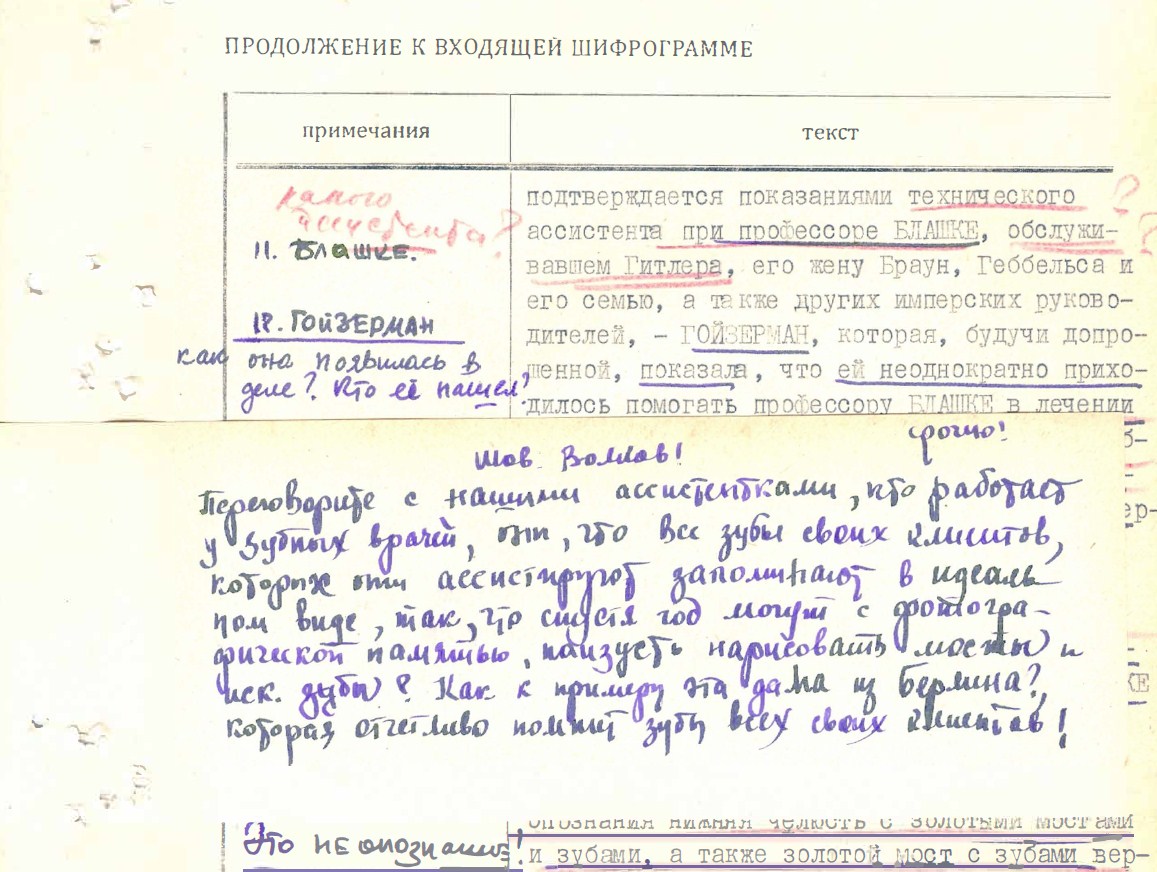 ПРОДОЛЖЕНИЕ К ВХОДЯЩЕЙ ШИФРОГРАММЕ
примечания
текст
какого
ассистента?
11. БЛАШКЕ.
12. ГОЙЗЕРМАН
как она появилась в
деле? Кто её нашел?
подтверждается показаниями технического
ассистента при профессоре БЛАШКЕ, обслужи-
вавшем Гитлера, его жену Браун, Геббельса и
его семью, а также других имперских руково-
дителей, – ГОЙЗЕРМАН, которая, будучи допро-
шенной, показала, что ей неоднократно прихо-
дилось помогать профессору БЛАШКЕ в лечении
срочно!
Переговорите с нашими ассистентками, кто работает
у зубных врачей, они, что все зубы своих клиентов,
которых они ассистируют запоминают в идеаль
ном виде, так, что спустя год могут с фотогра-
фической памятью, наизусть нарисовать мосты и
иск. зубы? Как к примеру эта дама из Берлина?,
которая отчетливо помнит зубы всех своих клиентов!
Это НЕ опознание!
опознания нижняя челюсть с золотыми мостами
и зубами, а также золотой мост с зубами вер-